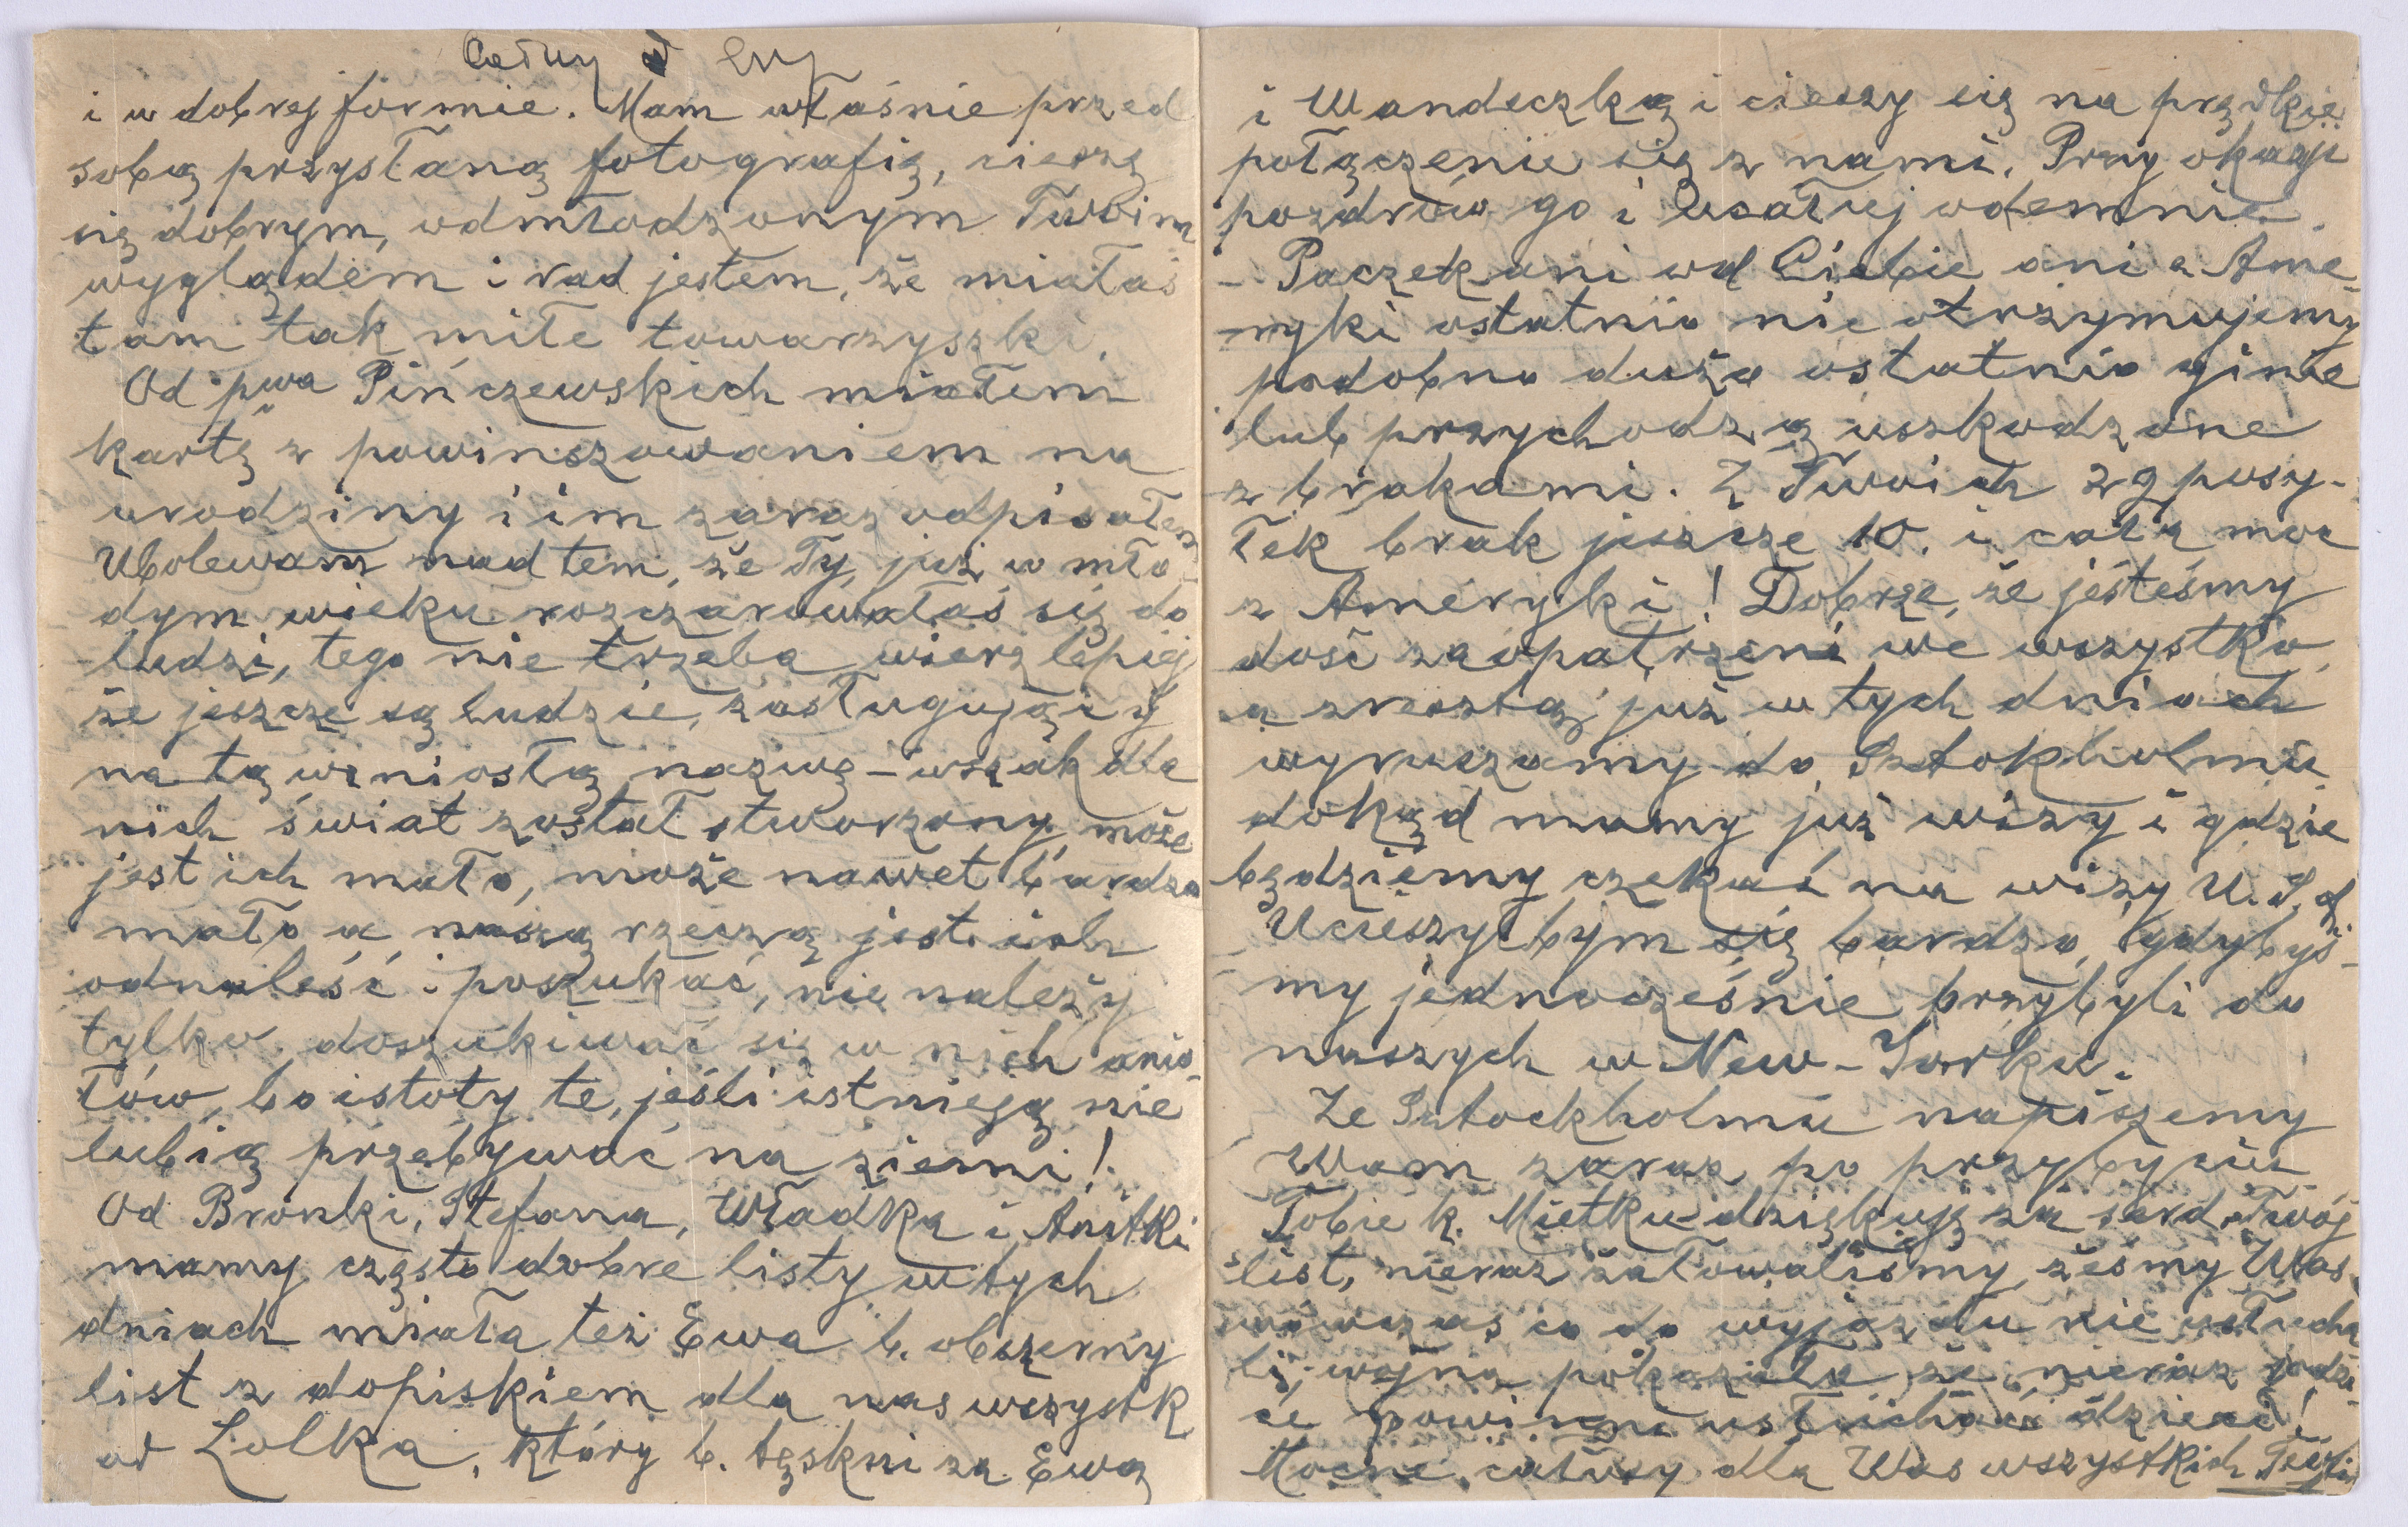 Całusy od Ewy
i w dobrej formie. Mam właśnie przed
sobą przysłaną fotografię, cieszę
się dobrym, odmłodzonym Twoim
wyglądem i rad jestem, że miałaś
tam tak miłe towarzyszki.
Od pwa Pińczewskich miałem
kartę z powinszowaniem na
urodziny i im zaraz odpisałem
Ubolewam nad tem, że Ty, już w mło-
dym wieku rozczarowałaś się do
ludzi, tego nie trzeba, wierz lepiej
że jeszcze są ludzie, zasługujący
na tą wzniosłą nazwę – wszak dla
nich świat został stworzony, może
jest ich mało, może nawet bardzo
mało a naszą rzeczą jest ich
odnaleść i poszukać, nie należy
tylko doszukiwać się w nich anio-
łów, bo istoty te, jeśli istnieją nie
lubią przebywać na ziemi!
Od Bronki, Stefana, Władka i Anitki
mamy często dobre listy w tych
dniach miała też Ewa b. obszerny
list z dopiskiem dla nas wszystk
od Lolka, który b. tęskni za Ewą
i Wandeczką i cieszy się na prędkie
połączenie się z nami. Przy okazji
pozdrów go i ucałuj odemnie.
– Paczek ani od Ciebie ani z Ame-
ryki ostatnio nie otrzymujemy
podobno dużo ostatnio ginie
lub przychodzą uszkodzone
z brakami. Z Twoich 29 posy-
łek brak jeszcze 10. i całą moc
z Ameryki! Dobrze, że jesteśmy
dość zaopatrzeni we wszystko,
a zresztą już w tych dniach
wyruszamy do Sztokholmu
dokąd mamy już wizy i gdzie
będziemy czekać na wizy U.S.A.
Ucieszyłbym się bardzo, gdybyś-
my jednocześnie przybyli do
naszych w New-Yorku.
Ze Sztockholmu napiszemy
Wam zaraz po przybyciu
Tobie k. Mietku dziękuję za serd. Twój
list, nieraz żałowaliśmy, żeśmy Was
wówczas co do wyjazdu nie usłucha
li, wojna pokazała, że nieraz rodzi-
ce powinni usłuchać dzieci!
Mocne całusy dla Was wszystkich